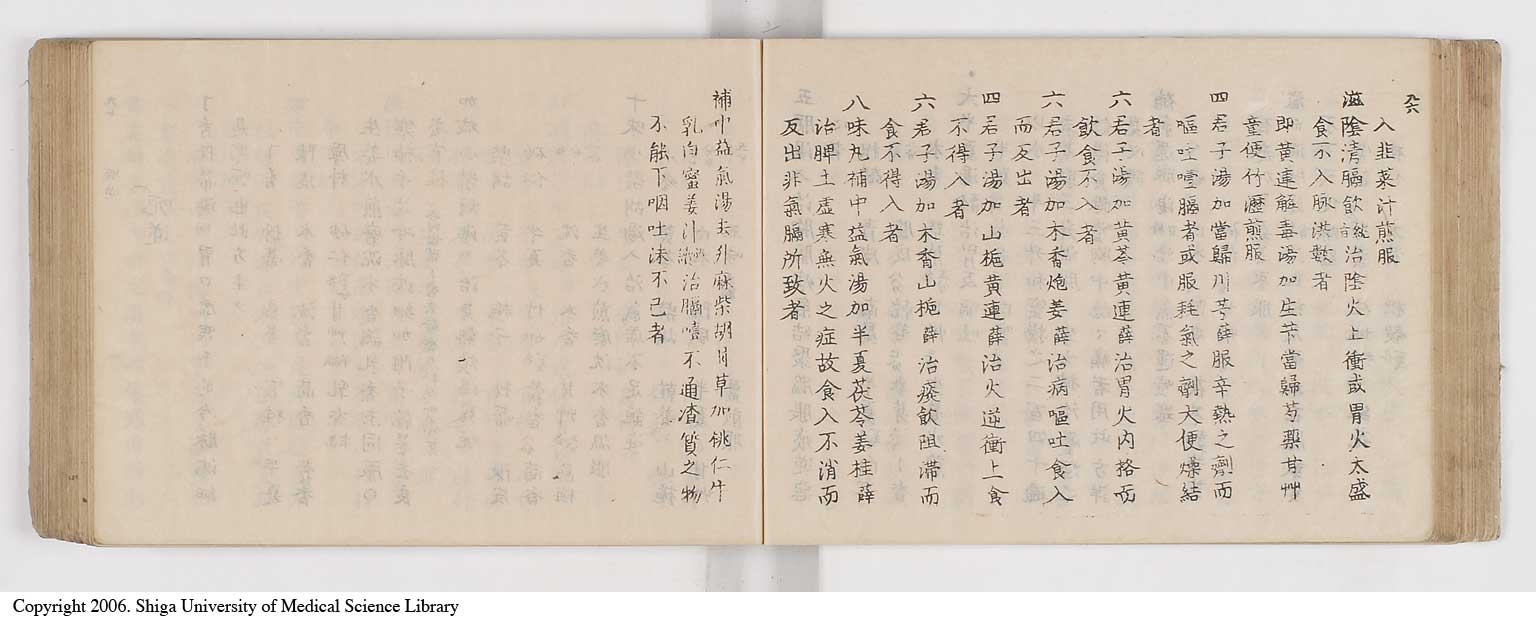 九六
入韭菜汁煎服
滋陰清膈飲 統 治陰火上衝或胃火太盛
食不入脉洪數者
即黄連解毒湯加生芐當歸芍藥甘艸
童便竹瀝煎服
四君子湯加當歸川芎薛服辛熱之劑而
嘔吐噎膈者或服耗氣之劑大便燥結
者
六君子湯加黄芩黄連薛治胃火内格而
飲食不入者
六君子湯加木香炮姜薛治病嘔吐食入
而反出者
四君子湯加山梔黄連薛治火逆衝上食
不得入者
六君子湯加木香山梔薛治痰飲阻滯而
食不得入者
八味丸補中益氣湯加半夏茯苓姜桂薛
治脾土虚寒無火之症故食入不消而
反出非氣膈所致者
補中益氣湯去升麻柴胡甘草加桃仁牛
乳白蜜姜汁 治膈噎不通渣質之物
不能下咽吐沫不已者
Copyright 2006. Shiga University of Medical Science Library